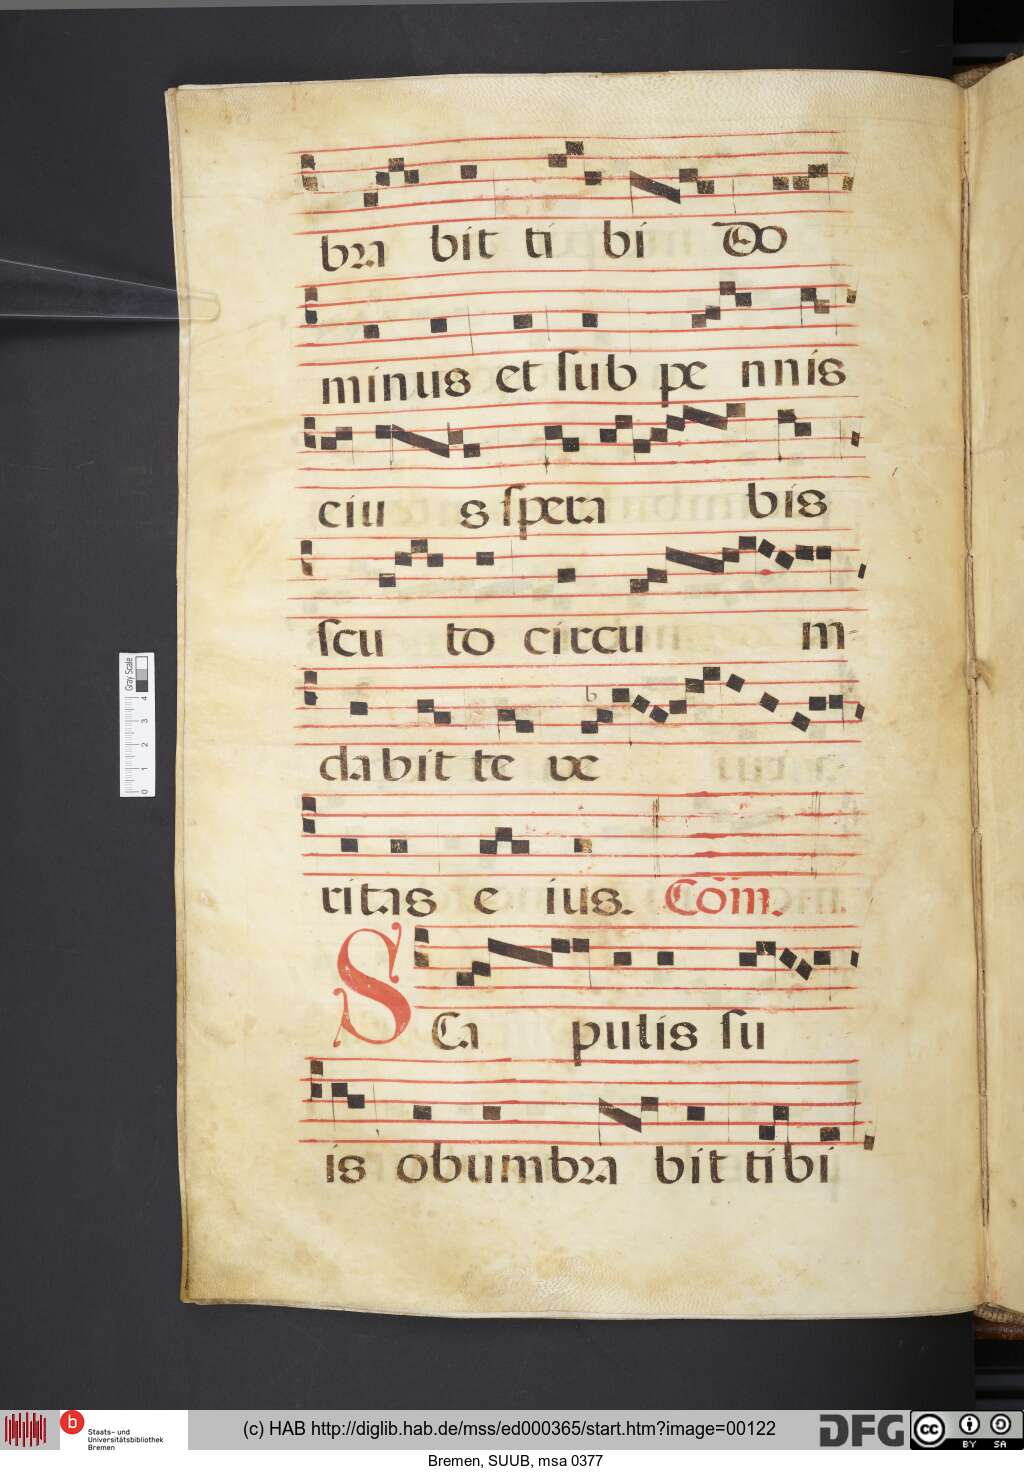 bra bit ti bi Do
minus et ſub pe nnis
eiu s ſpera bis
ſcu to circu m-
dabit te ve
ritas e ius. Cōm.
SCa pulis ſu
is obumbra bit tibi
Gray Scale
0 1 2 3 4
b Staats- und Universitätsbibliothek Bremen
(c) HAB http://diglib.hab.de/mss/ed000365/start.htm?image=00122
DFG
cc BY SA
Bremen, SUUB, msa 0377